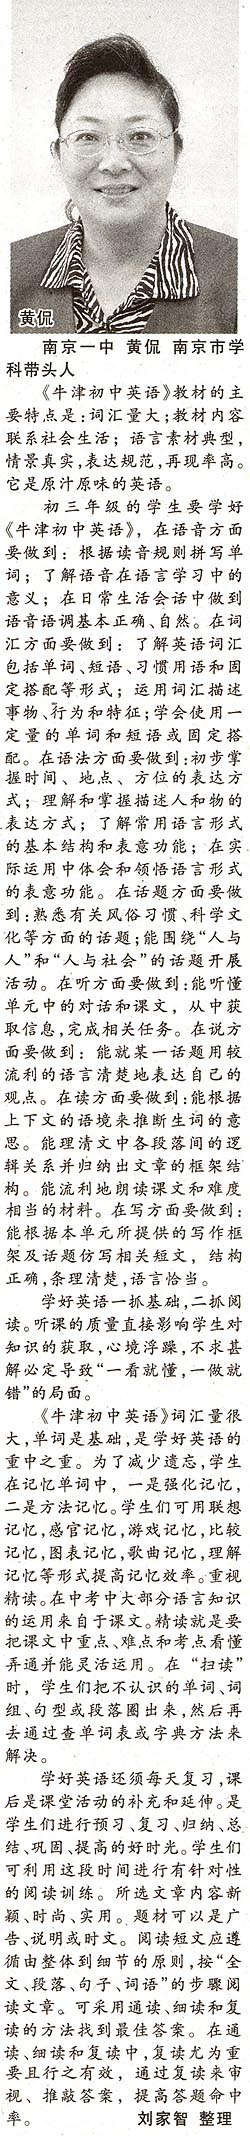 黄侃
南京一中 黄侃 南京市学
科带头人
《牛津初中英语》教材的主
要特点是：词汇量大；教材内容
联系社会生活；语言素材典型，
情景真实，表达规范，再现率高。
它是原汁原味的英语。
初三年级的学生要学好
《牛津初中英语》，在语音方面
要做到：根据读音规则拼写单
词；了解语音在语言学习中的
意义；在日常生活会话中做到
语音语调基本正确、自然。在词
汇方面要做到：了解英语词汇
包括单词、短语、习惯用语和固
定搭配等形式；运用词汇描述
事物、行为和特征；学会使用一
定量的单词和短语或固定搭
配。在语法方面要做到：初步掌
握时间、地点、方位的表达方
式；理解和掌握描述人和物的
表达方式；了解常用语言形式
的基本结构和表意功能；在实
际运用中体会和领悟语言形式
的表意功能。在话题方面要做
到：熟悉有关风俗习惯、科学文
化等方面的话题；能围绕“人与
人”和“人与社会”的话题开展
活动。在听方面要做到：能听懂
单元中的对话和课文，从中获
取信息，完成相关任务。在说方
面要做到：能就某一话题用较
流利的语言清楚地表达自己的
观点。在读方面要做到：能根据
上下文的语境来推断生词的意
思。能理清文中各段落间的逻
辑关系并归纳出文章的框架结
构。能流利地朗读课文和难度
相当的材料。在写方面要做到：
能根据本单元所提供的写作框
架及话题仿写相关短文，结构
正确，条理清楚，语言恰当。
学好英语一抓基础，二抓阅
读。听课的质量直接影响学生对
知识的获取，心境浮躁，不求甚
解必定导致“一看就懂，一做就
错”的局面。
《牛津初中英语》词汇量很
大，单词是基础，是学好英语的
重中之重。为了减少遗忘，学生
在记忆单词中，一是强化记忆，
二是方法记忆。学生们可用联想
记忆，感官记忆，游戏记忆，比较
记忆，图表记忆，歌曲记忆，理解
记忆等形式提高记忆效率。重视
精读。在中考中大部分语言知识
的运用来自于课文。精读就是要
把课文中重点、难点和考点看懂
弄通并能灵活运用。在“扫读”
时，学生们把不认识的单词、词
组、句型或段落圈出来，然后再
去通过查单词表或字典方法来
解决。
学好英语还须每天复习，课
后是课堂活动的补充和延伸。是
学生们进行预习、复习、归纳、总
结、巩固、提高的好时光。学生们
可利用这段时间进行有针对性
的阅读训练。所选文章内容新
颖、时尚、实用。题材可以是广
告、说明或时文。阅读短文应遵
循由整体到细节的原则，按“全
文、段落、句子、词语”的步骤阅
读文章。可采用通读、细读和复
读的方法找到最佳答案。在通
读、细读和复读中，复读尤为重
要且行之有效，通过复读来审
视、推敲答案，提高答题命中
率。 刘家智 整理